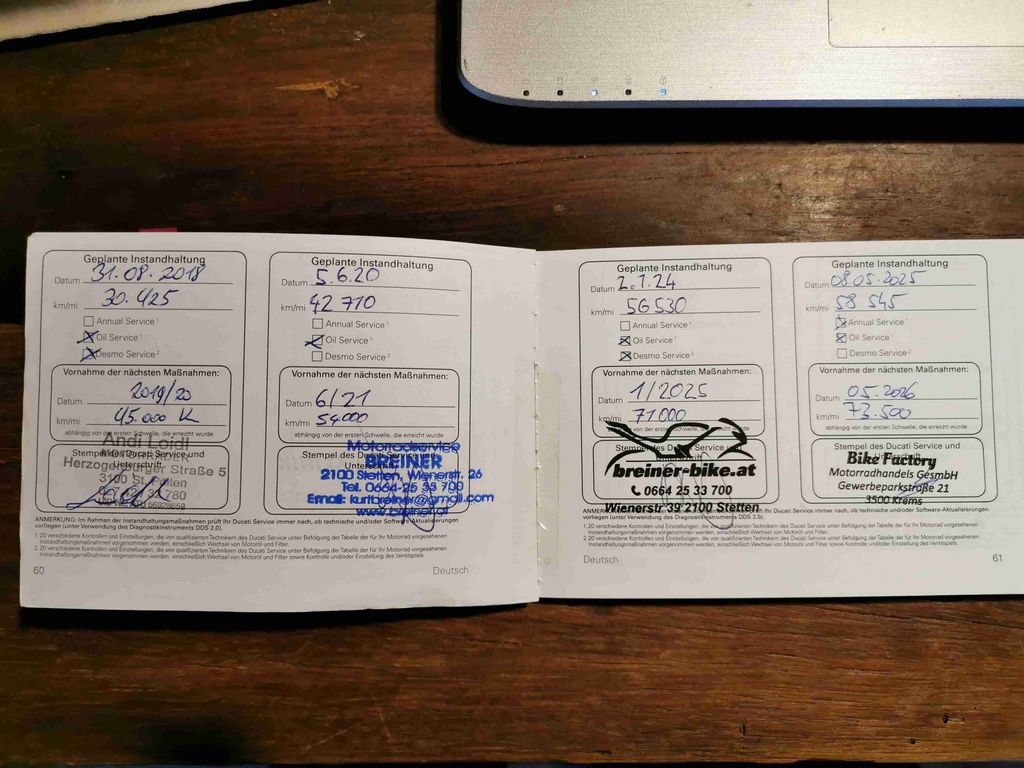 Geplante Instandhaltung
Datum 31.08.2018
km/mi 30.425
Annual Service 1
Oil Service 1
Desmo Service 2
Vornahme der nächsten Maßnahmen:
Datum 2019/20
km/mi 45.000 K
abhängig von der ersten Schwelle, die erreicht wurde
Stempel des Ducati Service und
Unterschrift
Andi Loidl
Herzogenburger Straße 5
3100 St. Pölten
Geplante Instandhaltung
Datum 5.6.20
km/mi 42 710
Annual Service 1
Oil Service 1
Desmo Service 2
Vornahme der nächsten Maßnahmen:
Datum 6/21
km/mi 54000
abhängig von der ersten Schwelle, die erreicht wurde
Stempel des Ducati Service und
Unterschrift
Motorradservice
BREINER
2100 Stetten, Wienerstr. 26
Tel. 0664-25 33 700
Email: kurtbreiner@gmail.com
ANMERKUNG: Im Rahmen der Instandhaltungsmaßnahmen prüft Ihr Ducati Service immer nach, ob technische und/oder Software-Aktualisierungen
vorliegen (unter Verwendung des Diagnostikinstruments DDS 2.0).
1. 20 verschiedene Kontrollen und Einstellungen, die von qualifizierten Technikern des Ducati Service unter Befolgung der Tabelle der für Ihr Motorrad vorgesehenen
Instandhaltungsmaßnahmen vorgenommen werden, einschließlich Wechsel von Motoröl und Filter.
2. 20 verschiedene Kontrollen und Einstellungen, die von qualifizierten Technikern des Ducati Service unter Befolgung der Tabelle der für Ihr Motorrad vorgesehenen
Instandhaltungsmaßnahmen vorgenommen werden, einschließlich Wechsel von Motoröl und Filter sowie Kontrolle und/oder Einstellung des Ventilspiels.
60
Deutsch
Geplante Instandhaltung
Datum 2.1.24
km/mi 56530
Annual Service 1
Oil Service 1
Desmo Service 2
Vornahme der nächsten Maßnahmen:
Datum 1/2025
km/mi 71000
von der ersten Schwelle, die erreicht wurde
Stempel des Ducati Service und
breiner-bike.at
0664 25 33 700
Wienerstr 39 2100 Stetten
Geplante Instandhaltung
Datum 08.05.2025
km/mi 58 545
Annual Service 1
Oil Service 1
Desmo Service 2
Vornahme der nächsten Maßnahmen:
Datum 05.2026
km/mi 73.500
abhängig von der ersten Schwelle, die erreicht wurde
Stempel des Ducati Service und
Bike Factory
Motorradhandels GesmbH
Gewerbeparkstraße 21
3500 Krems
Ihr Ducati Service immer nach, ob technische und/oder Software-Aktualisierungen
vorliegen (unter Verwendung des Diagnostikinstruments DDS 2.0).
1. 20 verschiedene Kontrollen und Einstellungen, die von qualifizierten Technikern des Ducati Service unter Befolgung der Tabelle der für Ihr Motorrad vorgesehenen
Instandhaltungsmaßnahmen vorgenommen werden, einschließlich Wechsel von Motoröl und Filter.
2. 20 verschiedene Kontrollen und Einstellungen, die von qualifizierten Technikern des Ducati Service unter Befolgung der Tabelle der für Ihr Motorrad vorgesehenen
Instandhaltungsmaßnahmen vorgenommen werden, einschließlich Wechsel von Motoröl und Filter sowie Kontrolle und/oder Einstellung des Ventilspiels.
Deutsch
61